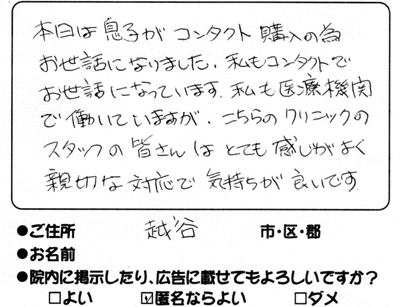 本日は息子がコンタクト購入の為
お世話になりました。私もコンタクトで
お世話になっています。私も医療機関
で働いていますが、こちらのクリニックの
スタッフの皆さんはとても感じがよく
親切な対応で気持ちが良いです
●ご住所 越谷 市・区・郡
●お名前
●院内に掲示したり、広告に載せてもよろしいですか？
□よい ☑匿名ならよい □ダメ